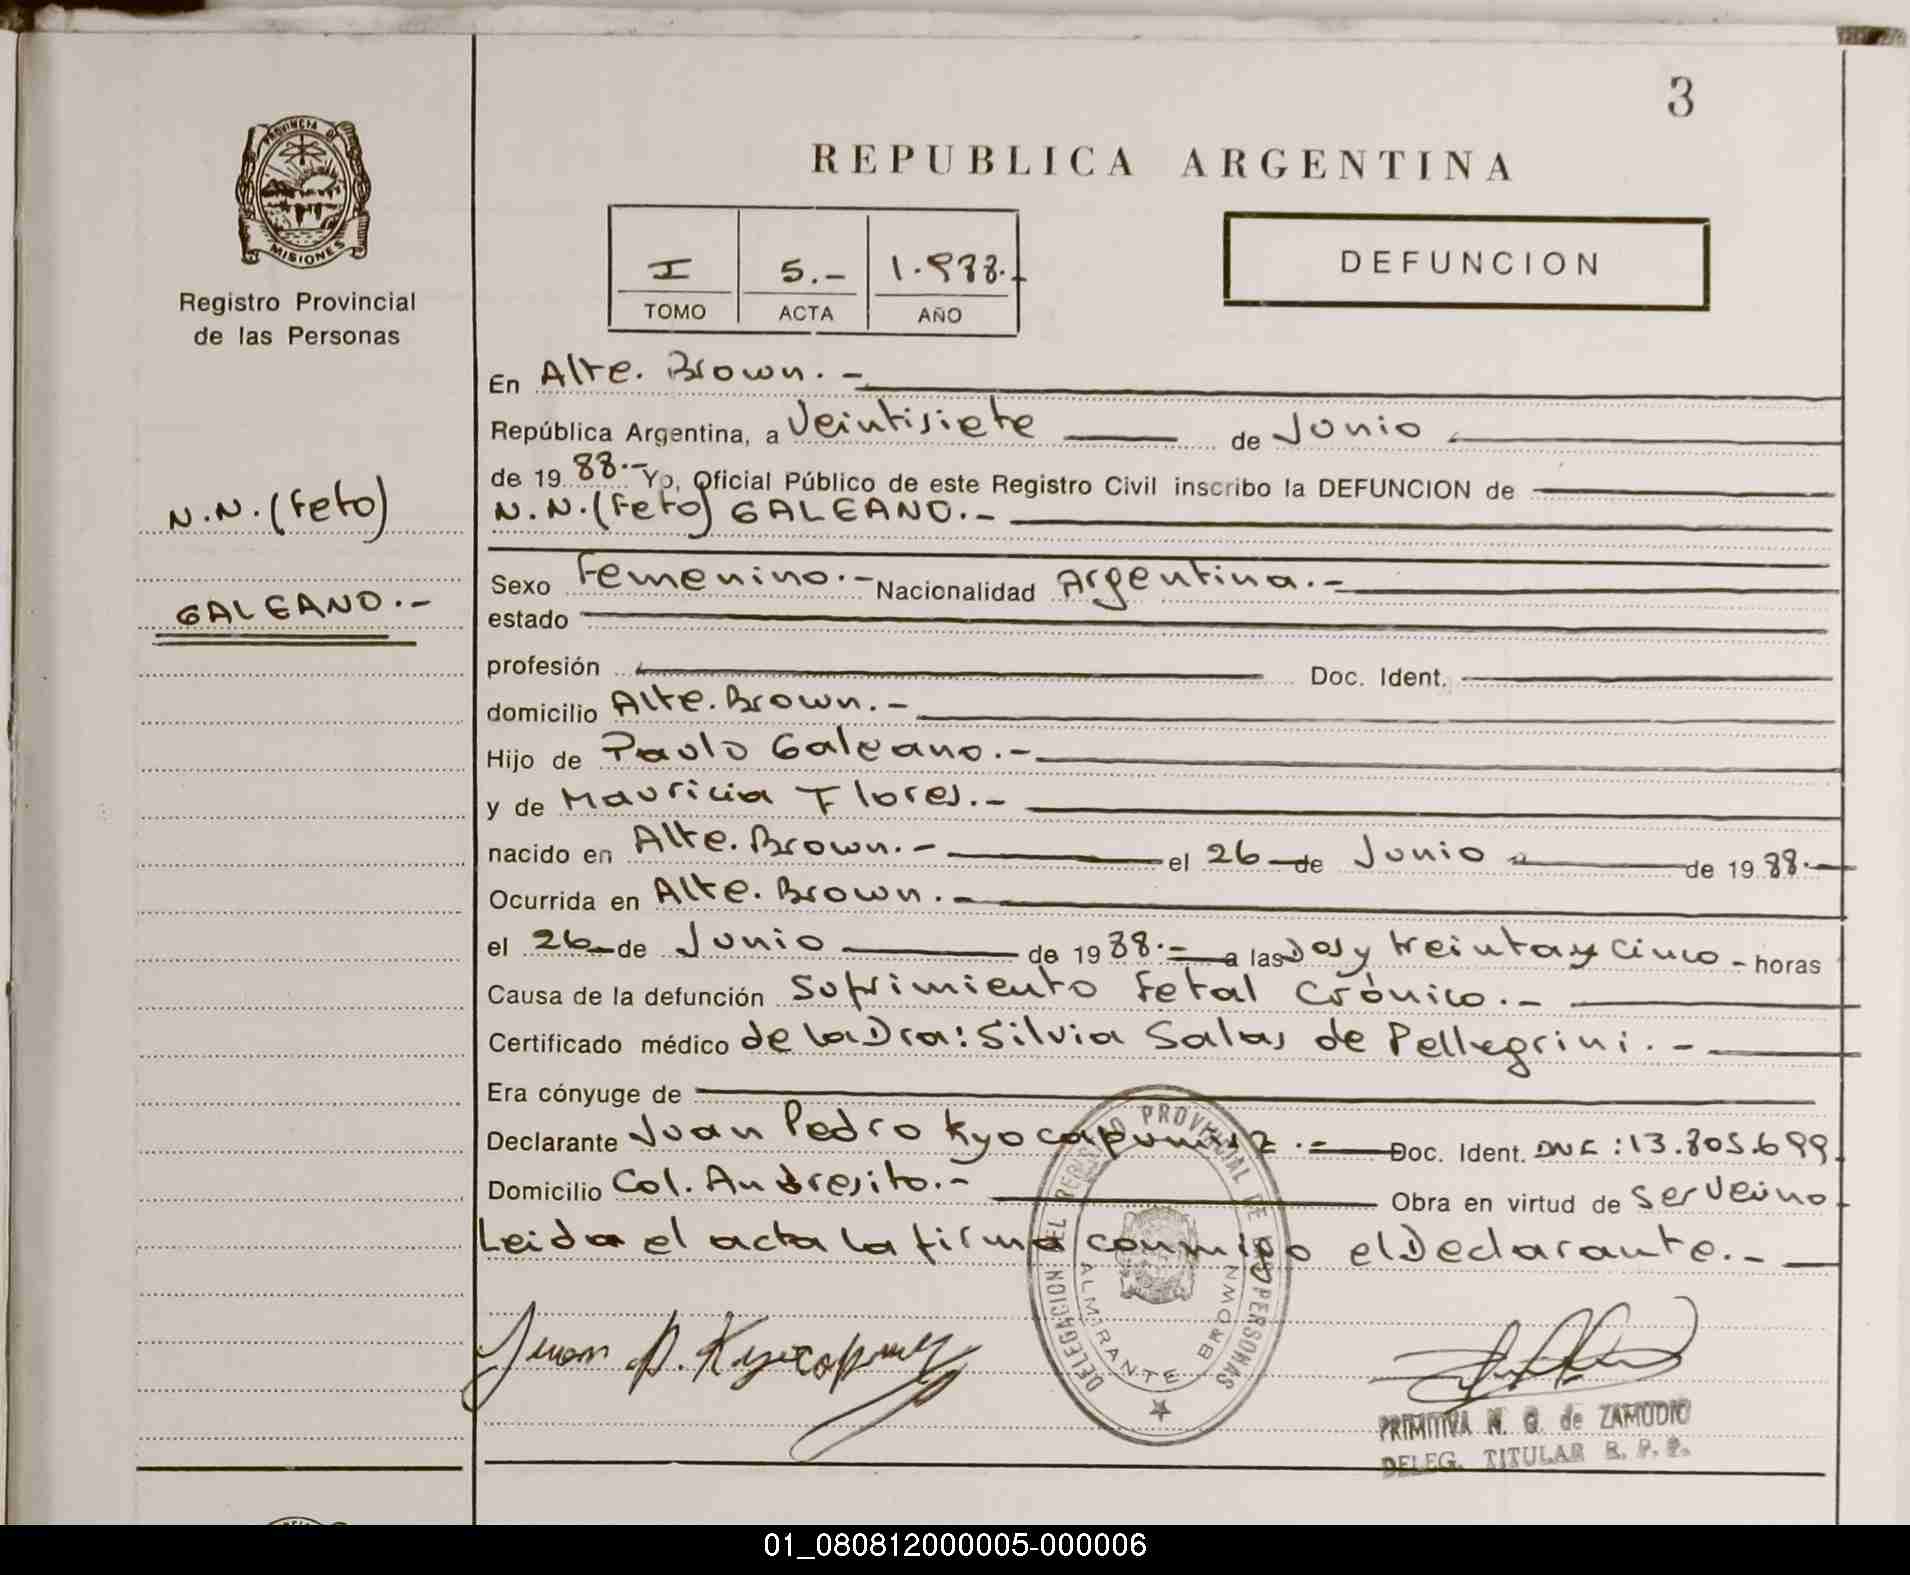 3
PROVINCIA DE
MISIONES
Registro Provincial
de las Personas
REPUBLICA ARGENTINA
I 5.- 1.988.-
TOMO ACTA AÑO
DEFUNCION
N.N. (Feto)
GALEANO.-
En Alte. Brown.-
República Argentina, a Veintisiete de Junio
de 19 88.- Yo, Oficial Público de este Registro Civil inscribo la DEFUNCION de
N.N. (Feto) GALEANO.-
Sexo Femenino.- Nacionalidad Argentina.-
estado
profesión Doc. Ident.
domicilio Alte. Brown.-
Hijo de Paulo Galeano.-
y de Mauricia Flores.-
nacido en Alte. Brown.- el 26 de Junio de 19 88.-
Ocurrida en Alte. Brown.-
el 26 de Junio de 19 88.- a las Dos y treinta y cinco - horas
Causa de la defunción Sufrimiento Fetal Crónico.-
Certificado médico de la Dra: Silvia Salas de Pellegrini.-
Era cónyuge de
Declarante Juan Pedro .- Doc. Ident. DNI: 13.805.699
Domicilio Col. Andresito.- Obra en virtud de ser Vecino
Leida el acta la firma conmigo el Declarante.-
DELEGACION DEL REGISTRO PROVINCIAL DE LAS PERSONAS
ALMIRANTE BROWN
Juan P.
PRIMITIVA N. G. de ZAMUDIO
DELEG. TITULAR R. P. P.
01_080812000005-000006